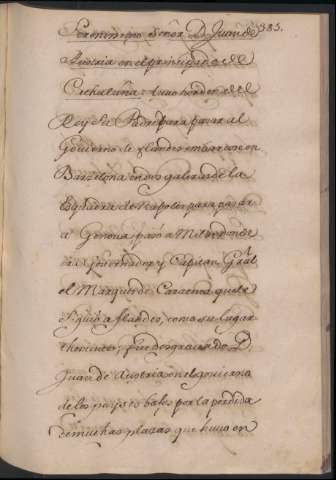 Serenissimo Señor D. Juan de 385.
Austria en el principado de
Cathaluña: tuuo horden del
Rey su Padre para pasar al
Gouierno de flandes embarcose en
Barcelona en dos galeras de la
Esquadra de Napoles para pasar
a Genoua, pasó a Milan donde
era Gouernador y Capitan Gral
el Marques de Caracena que le
siguió a flandes, como su lugar
theniente, fue desgraciado D.
Juan de Austria en el gouierno
de los payses bajos por la perdida
de muchas plazas que huuo en